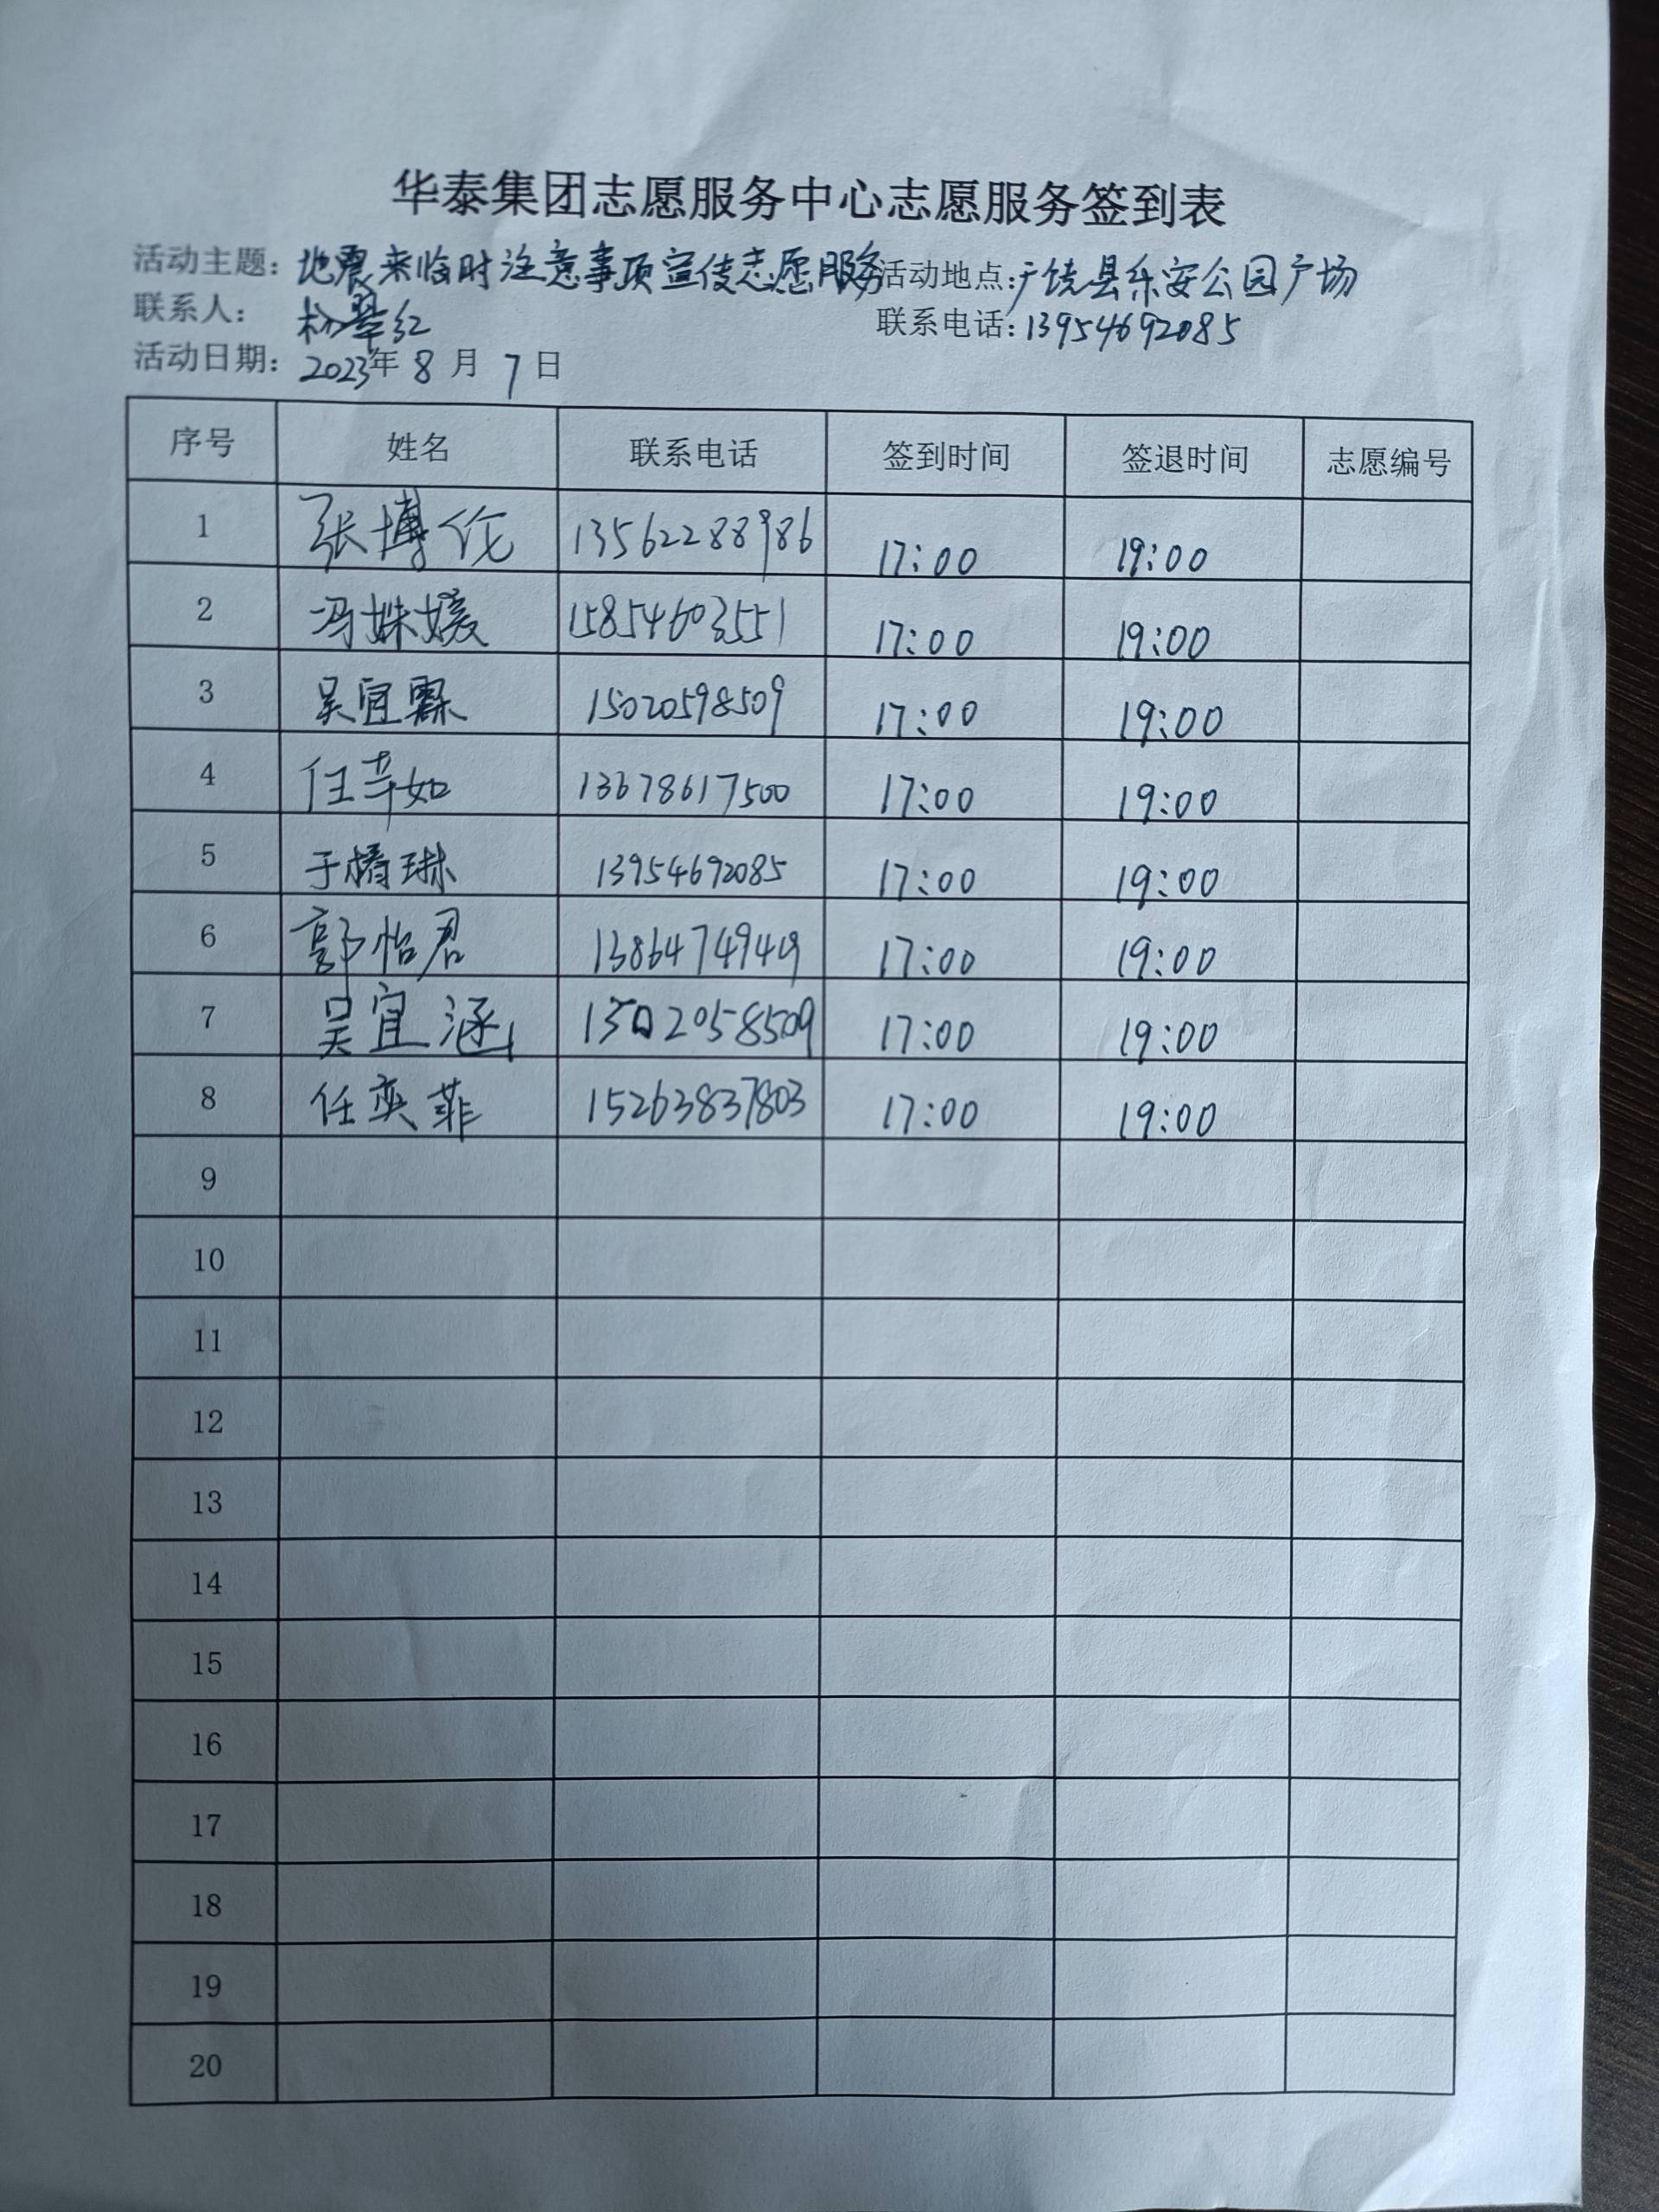 华泰集团志愿服务中心志愿服务签到表
活动主题：地震来临时注意事项宣传志愿服务 活动地点：广饶县乐安公园广场
联系人：翠红 联系电话：13954692085
活动日期：2023年8月7日
序号 姓名 联系电话 签到时间 签退时间 志愿编号
1 张博伦 13562288986 17:00 19:00
2 冯姝媛 15854603551 17:00 19:00
3 吴宜霖 15020598509 17:00 19:00
4 任芊如 13678617500 17:00 19:00
5 于椿琳 13954692085 17:00 19:00
6 郭怡君 13864749449 17:00 19:00
7 吴宜涵 15020598509 17:00 19:00
8 任奕菲 15263837803 17:00 19:00
9
10
11
12
13
14
15
16
17
18
19
20